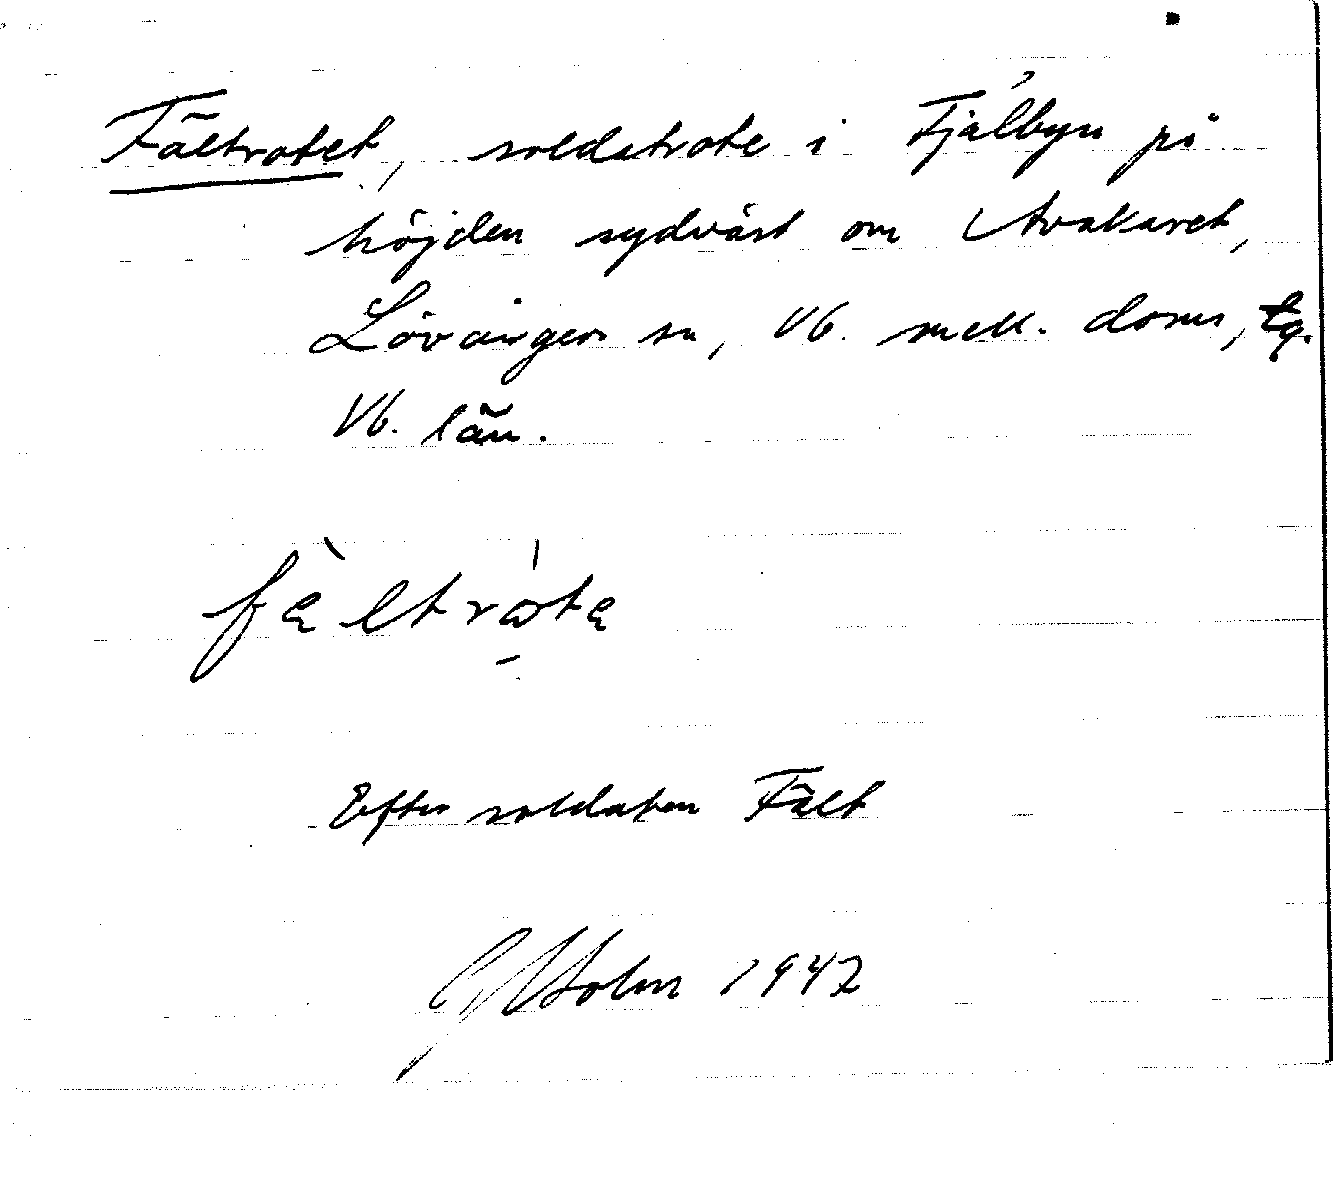 Fältrotet, soldatrote i Fjälbyn på
höjden sydväst om Avakaret,
Lövångers sn, Vb. mell. doms, tg.
Vb. län.
fè̢ltrὼtę
Efter soldaten Fält
G Holm 1947